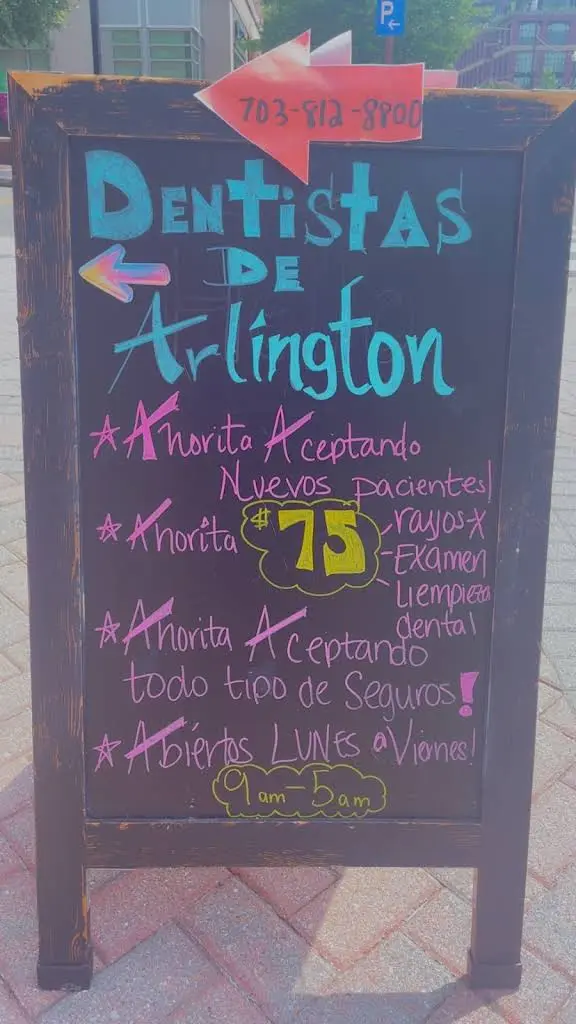 P
703-812-8800
DENtiStAS
DE
Arlington
Ahorita Aceptando
Nuevos pacientes!
Ahorita $75 rayos-x
Examen
Liempieza
dental
Ahorita Aceptando
todo tipo de Seguros!
Abiertos LUNES a Viernes!
9am-5am